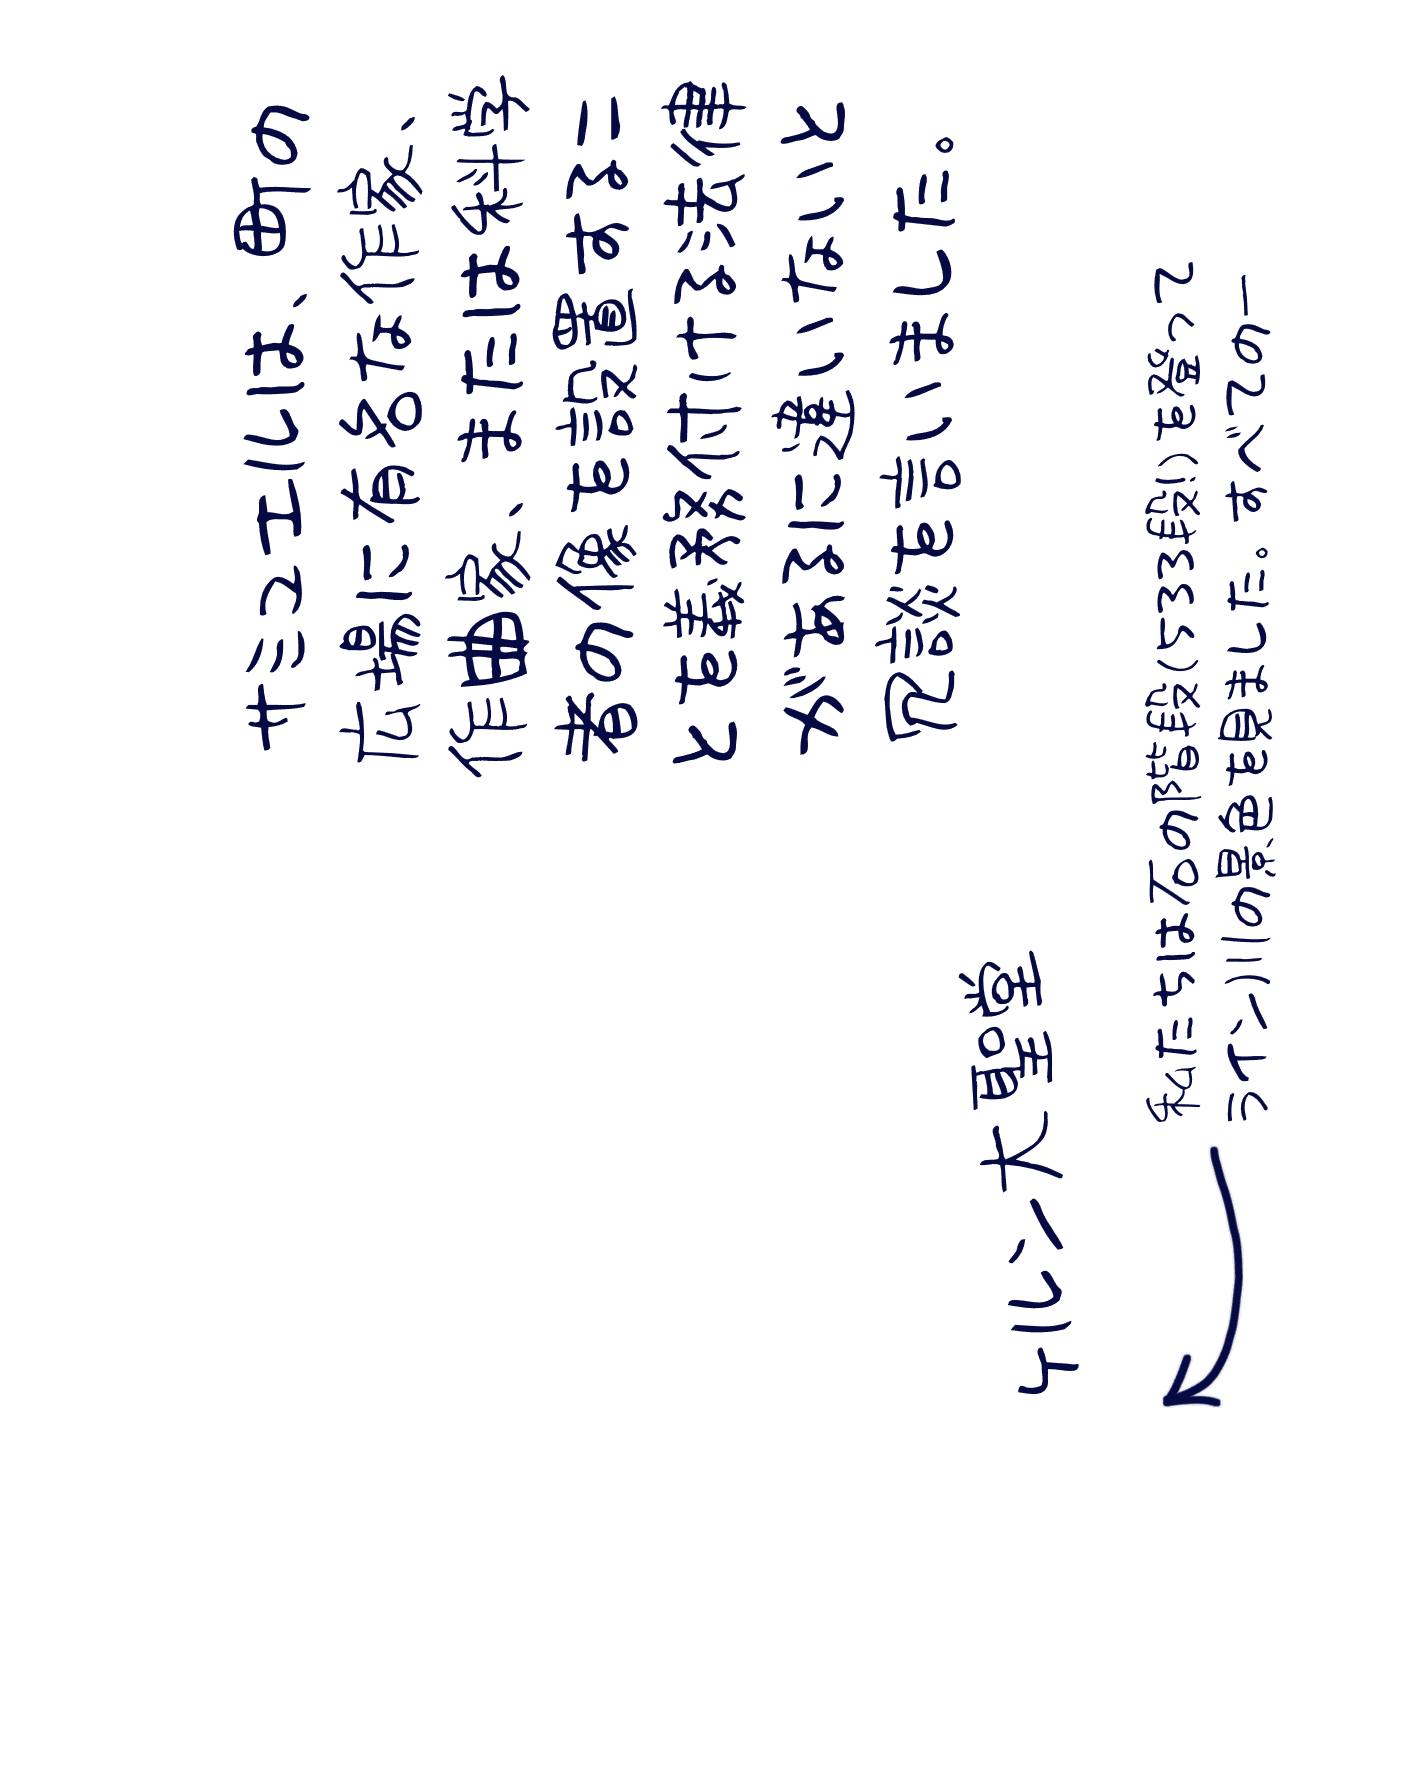 サミュエルは、町の
広場に有名な作家、
作曲家、または科学
者の像を設置するこ
とを義務付ける法律
があるに違いないと
冗談を言いました。
ケルン大聖堂
私たちは石の階段(533段!)を登って
ライン川の景色を見ました。すべての一